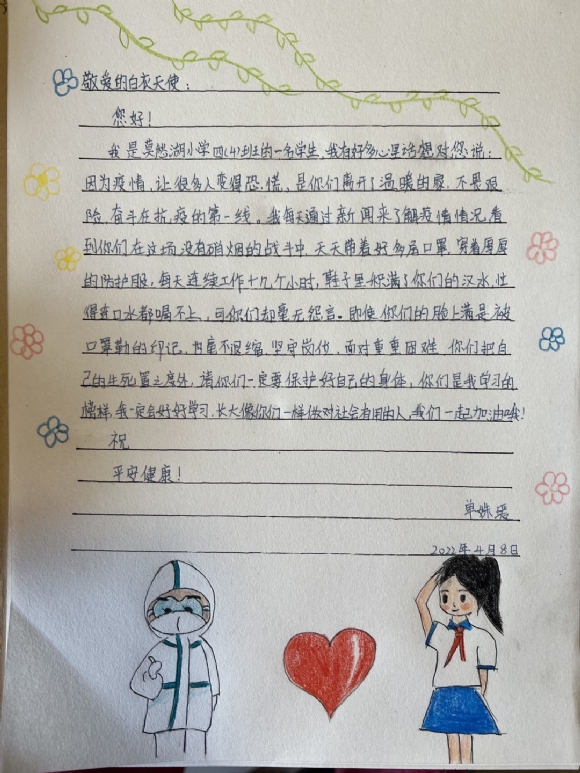 敬爱的白衣天使：
您好！
我是莫愁湖小学四(4)班的一名学生,我有好多心里话想对您说：
因为疫情,让很多人变得恐慌,是你们离开了温暖的家,不畏艰
险,奋斗在抗疫的第一线,我每天通过新闻来了解疫情情况,看
到你们在这场没有硝烟的战斗中,天天带着好多层口罩,穿着厚厚
的防护服,每天连续工作十几个小时,鞋子里积满了你们的汗水,忙
得连口水都喝不上,可你们却毫无怨言。即使你们的脸上满是被
口罩勒的印记,也毫不退缩,坚守岗位,面对重重困难,你们把自
己的生死置之度外,请你们一定要保护好自己的身体,你们是我学习的
榜样,我一定会好好学习,长大像你们一样做对社会有用的人,我们一起加油哦！
祝
平安健康！
单姝瑶
2022年4月8日